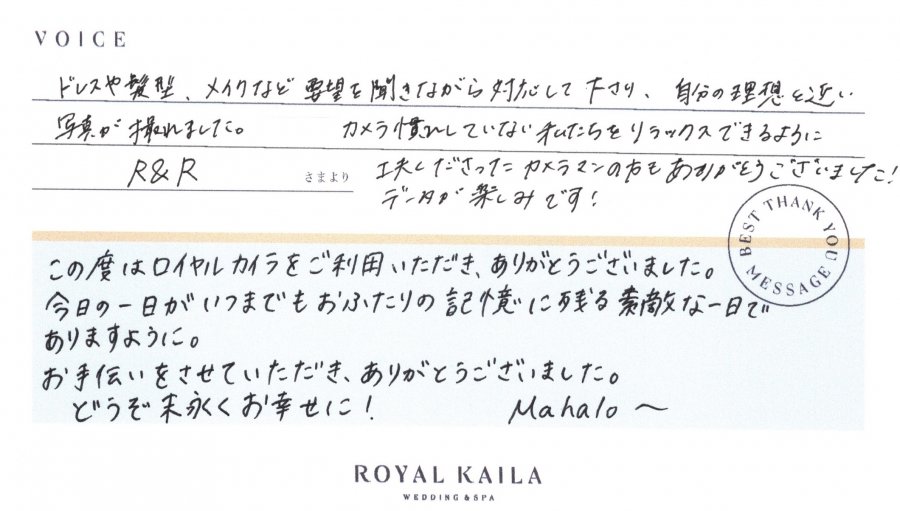 VOICE
ドレスや髪型、メイクなど要望を聞きながら対応して下さり、自分の理想と近い
写真が撮れました。 カメラ慣れしていない私たちをリラックスできるように
R&R さまより 工夫しださったカメラマンの方もありがとうございました!
データが楽しみです!
BEST THANK YOU MESSAGE
この度はロイヤルカイラをご利用いただき、ありがとうございました。
今日の一日がいつまでもおふたりの記憶に残る素敵な一日で
ありますように。
お手伝いをさせていただき、ありがとうございました。
どうぞ末永くお幸せに! Mahalo~
ROYAL KAILA
WEDDING & SPA